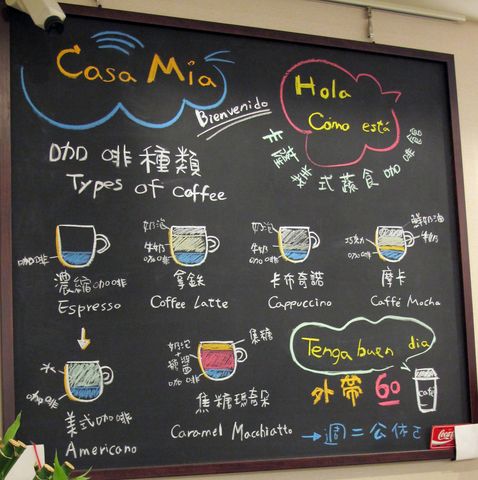 Casa Mia
Bienvenido
Hola
Cómo está
卡蘿米式蔬食咖啡館
咖啡種類
Types of Coffee
咖啡
濃縮咖啡
Espresso
奶泡
牛奶
咖啡
拿鉄
Coffee Latte
奶泡
牛奶
咖啡
卡布奇諾
Cappuccino
鮮奶油
巧克力
牛奶
咖啡
摩卡
Caffé Mocha
水
咖啡
美式咖啡
Americano
奶泡
+
咖啡
焦糖
焦糖瑪奇朵
Caramel Macchiatto
Tenga buen dia
外帶 60
Café
→週二公休